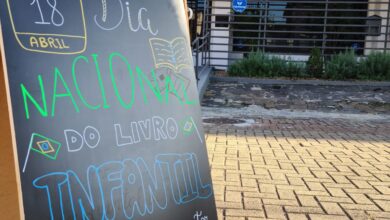 18
ABRIL
Dia
NACIONAL
DO LIVRO
INFANTIL